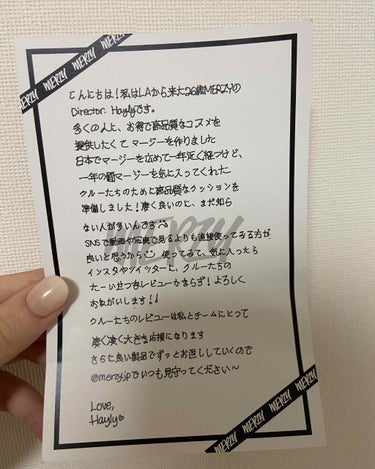 MERZY MERZY MERZY
こんにちは!私はLAから来た26歳MERZYの
Director. Haylyです。
多くの人に、お得で高品質なコスメを
提供したくて マージーを作りました
日本でマージーを広めて一年近く経つけど、
一年の間マージーを気に入ってくれた
クルーたちのために高品質なクッションを
準備しました!凄く良いのに、まだ知ら
ない人が多いんです
MERZY
SNSで動画や写真で見るよりも直接使ってみる方が
良いと思うから 使ってみて、気に入ったら
インスタやツイッターに、クルーたちの
たーいせつなレビューかならず!よろしく
おねがいします!!
クルーたちのレビューは私とチームにとって
凄く凄く大きな応援になります
さらに良い製品でずっとお返ししていくので
@merzy.jpでいつも見守ってください〜
Love,
Hayly♡
MERZY MERZY MERZY